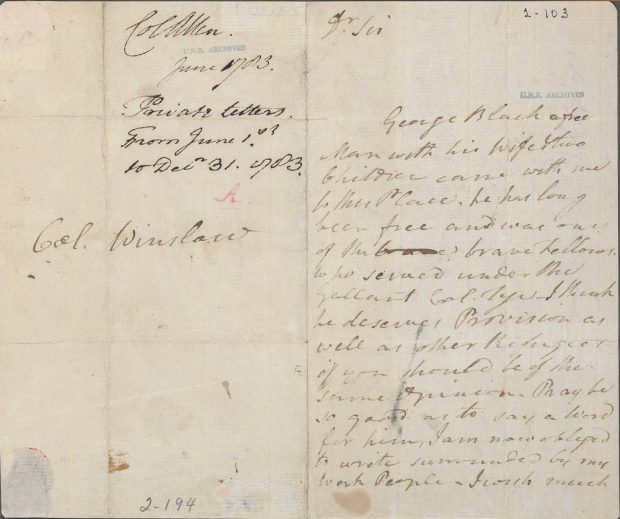 Col Allen.
U.N.B. ARCHIVES
June 1783.
Private letters.
From June 1st
to Decr 31. 1783.
A.
Col. Winslow
2-194
2-103
Dr Sir
U.N.B. ARCHIVES
George Black a free
Man with his Wife & two
Children came with me
to this Place, he has long
been free and was one
of the brave fellows
who served under the
Gallant Col. Tye - I think
he deserves Provision as
well as other Refugees
if you should be of the
same opinion. Pray be
so good as to say a word
for him, I am now obliged
to write surrounded by my
Work People - I wish much